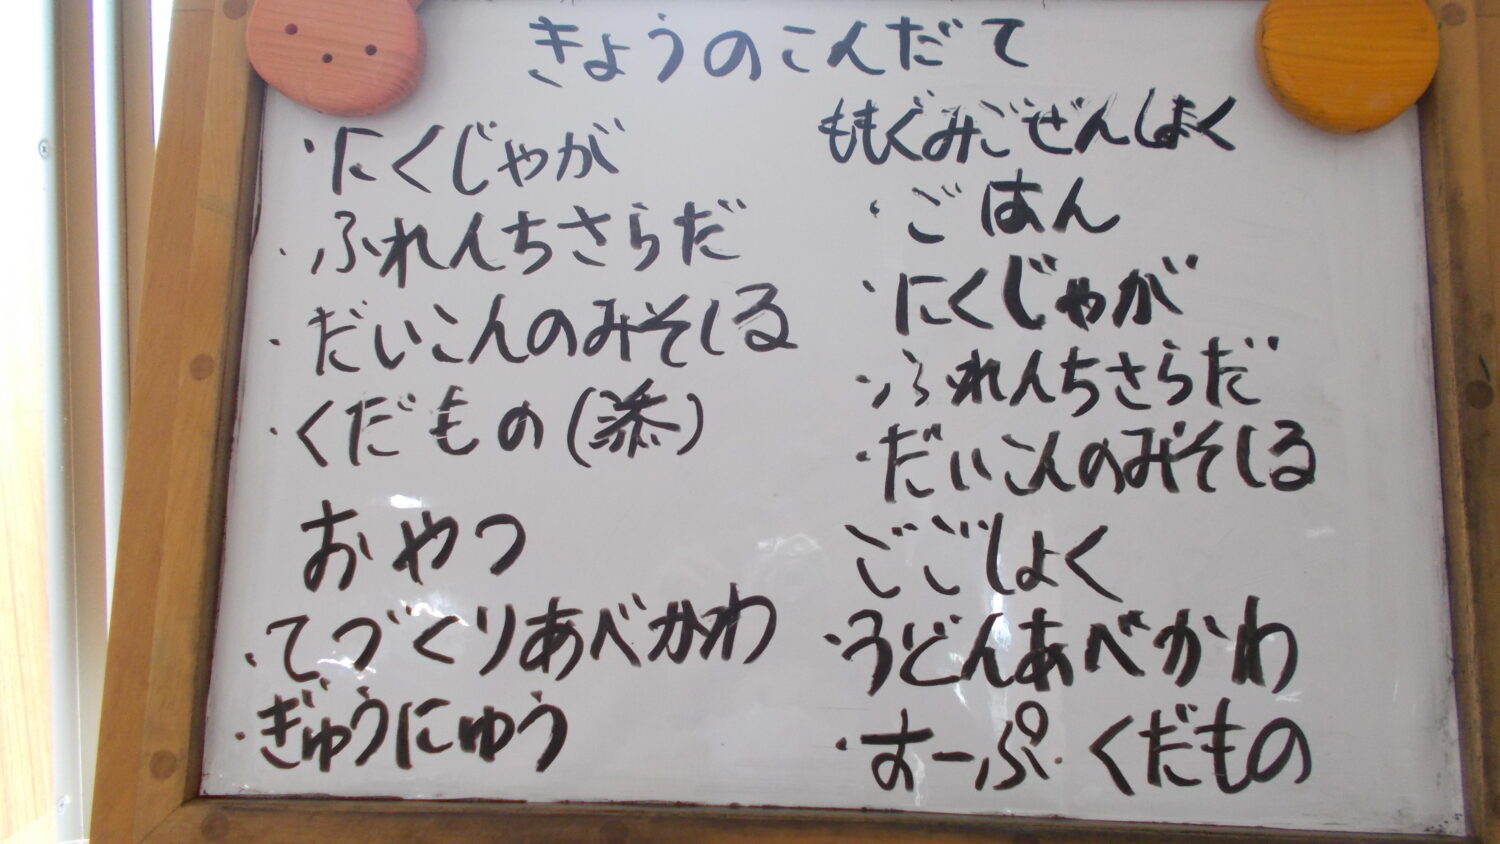 きょうのこんだて
・にくじゃが
・ふれんちさらだ
・だいこんのみそしる
・くだもの(添)
おやつ
・てづくりあべかわ
・ぎゅうにゅう
ももぐみごぜんしょく
・ごはん
・にくじゃが
・ふれんちさらだ
・だいこんのみそしる
ごごしょく
・うどんあべかわ
・すーぷ・くだもの